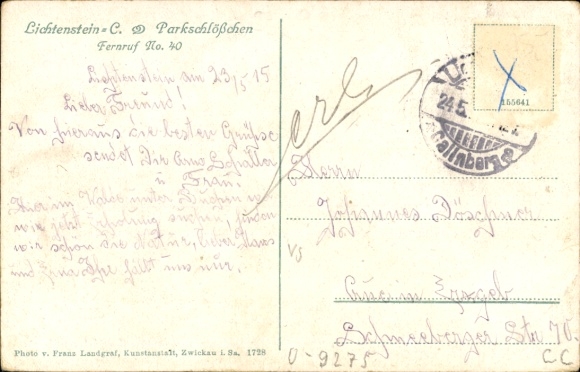 Lichtenstein=C. Parkschlößchen
Fernruf No. 40
Lichtenstein am 23/5 15
Lieber Freund!
Von hier aus die besten Grüsse
sendet Dir
u Frau.
Hier im Walde unter Buchen
wir jetzt Erholung suchen, finden
wir schön die Natur, lieber Hans
und fehlt uns nur.
155641
24.5.
Herrn
Johannes Döschner
Aue in Erzgeb
Schneeberger Str 70.
Photo v. Franz Landgraf, Kunstanstalt, Zwickau i. Sa. 1728
0-9275
CC